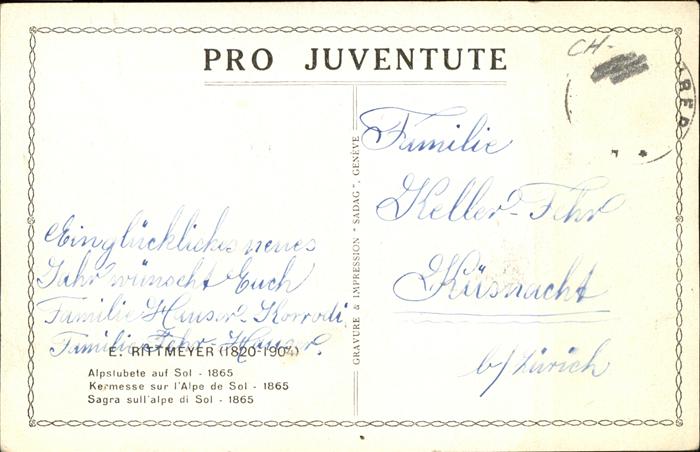 PRO JUVENTUTE
CH-
Ein glückliches neues
Jahr wünscht Euch
Familie Hauser-Korrodi
Familie Fehr-Hauser.
E. RITTMEYER (1820-1904)
Alpstubete auf Sol - 1865
Kermesse sur l'Alpe de Sol - 1865
Sagra sull'alpe di Sol - 1865
GRAVURE & IMPRESSION "SADAG", GENÈVE
Familie
Keller-Fehr
Küsnacht
b/Zürich